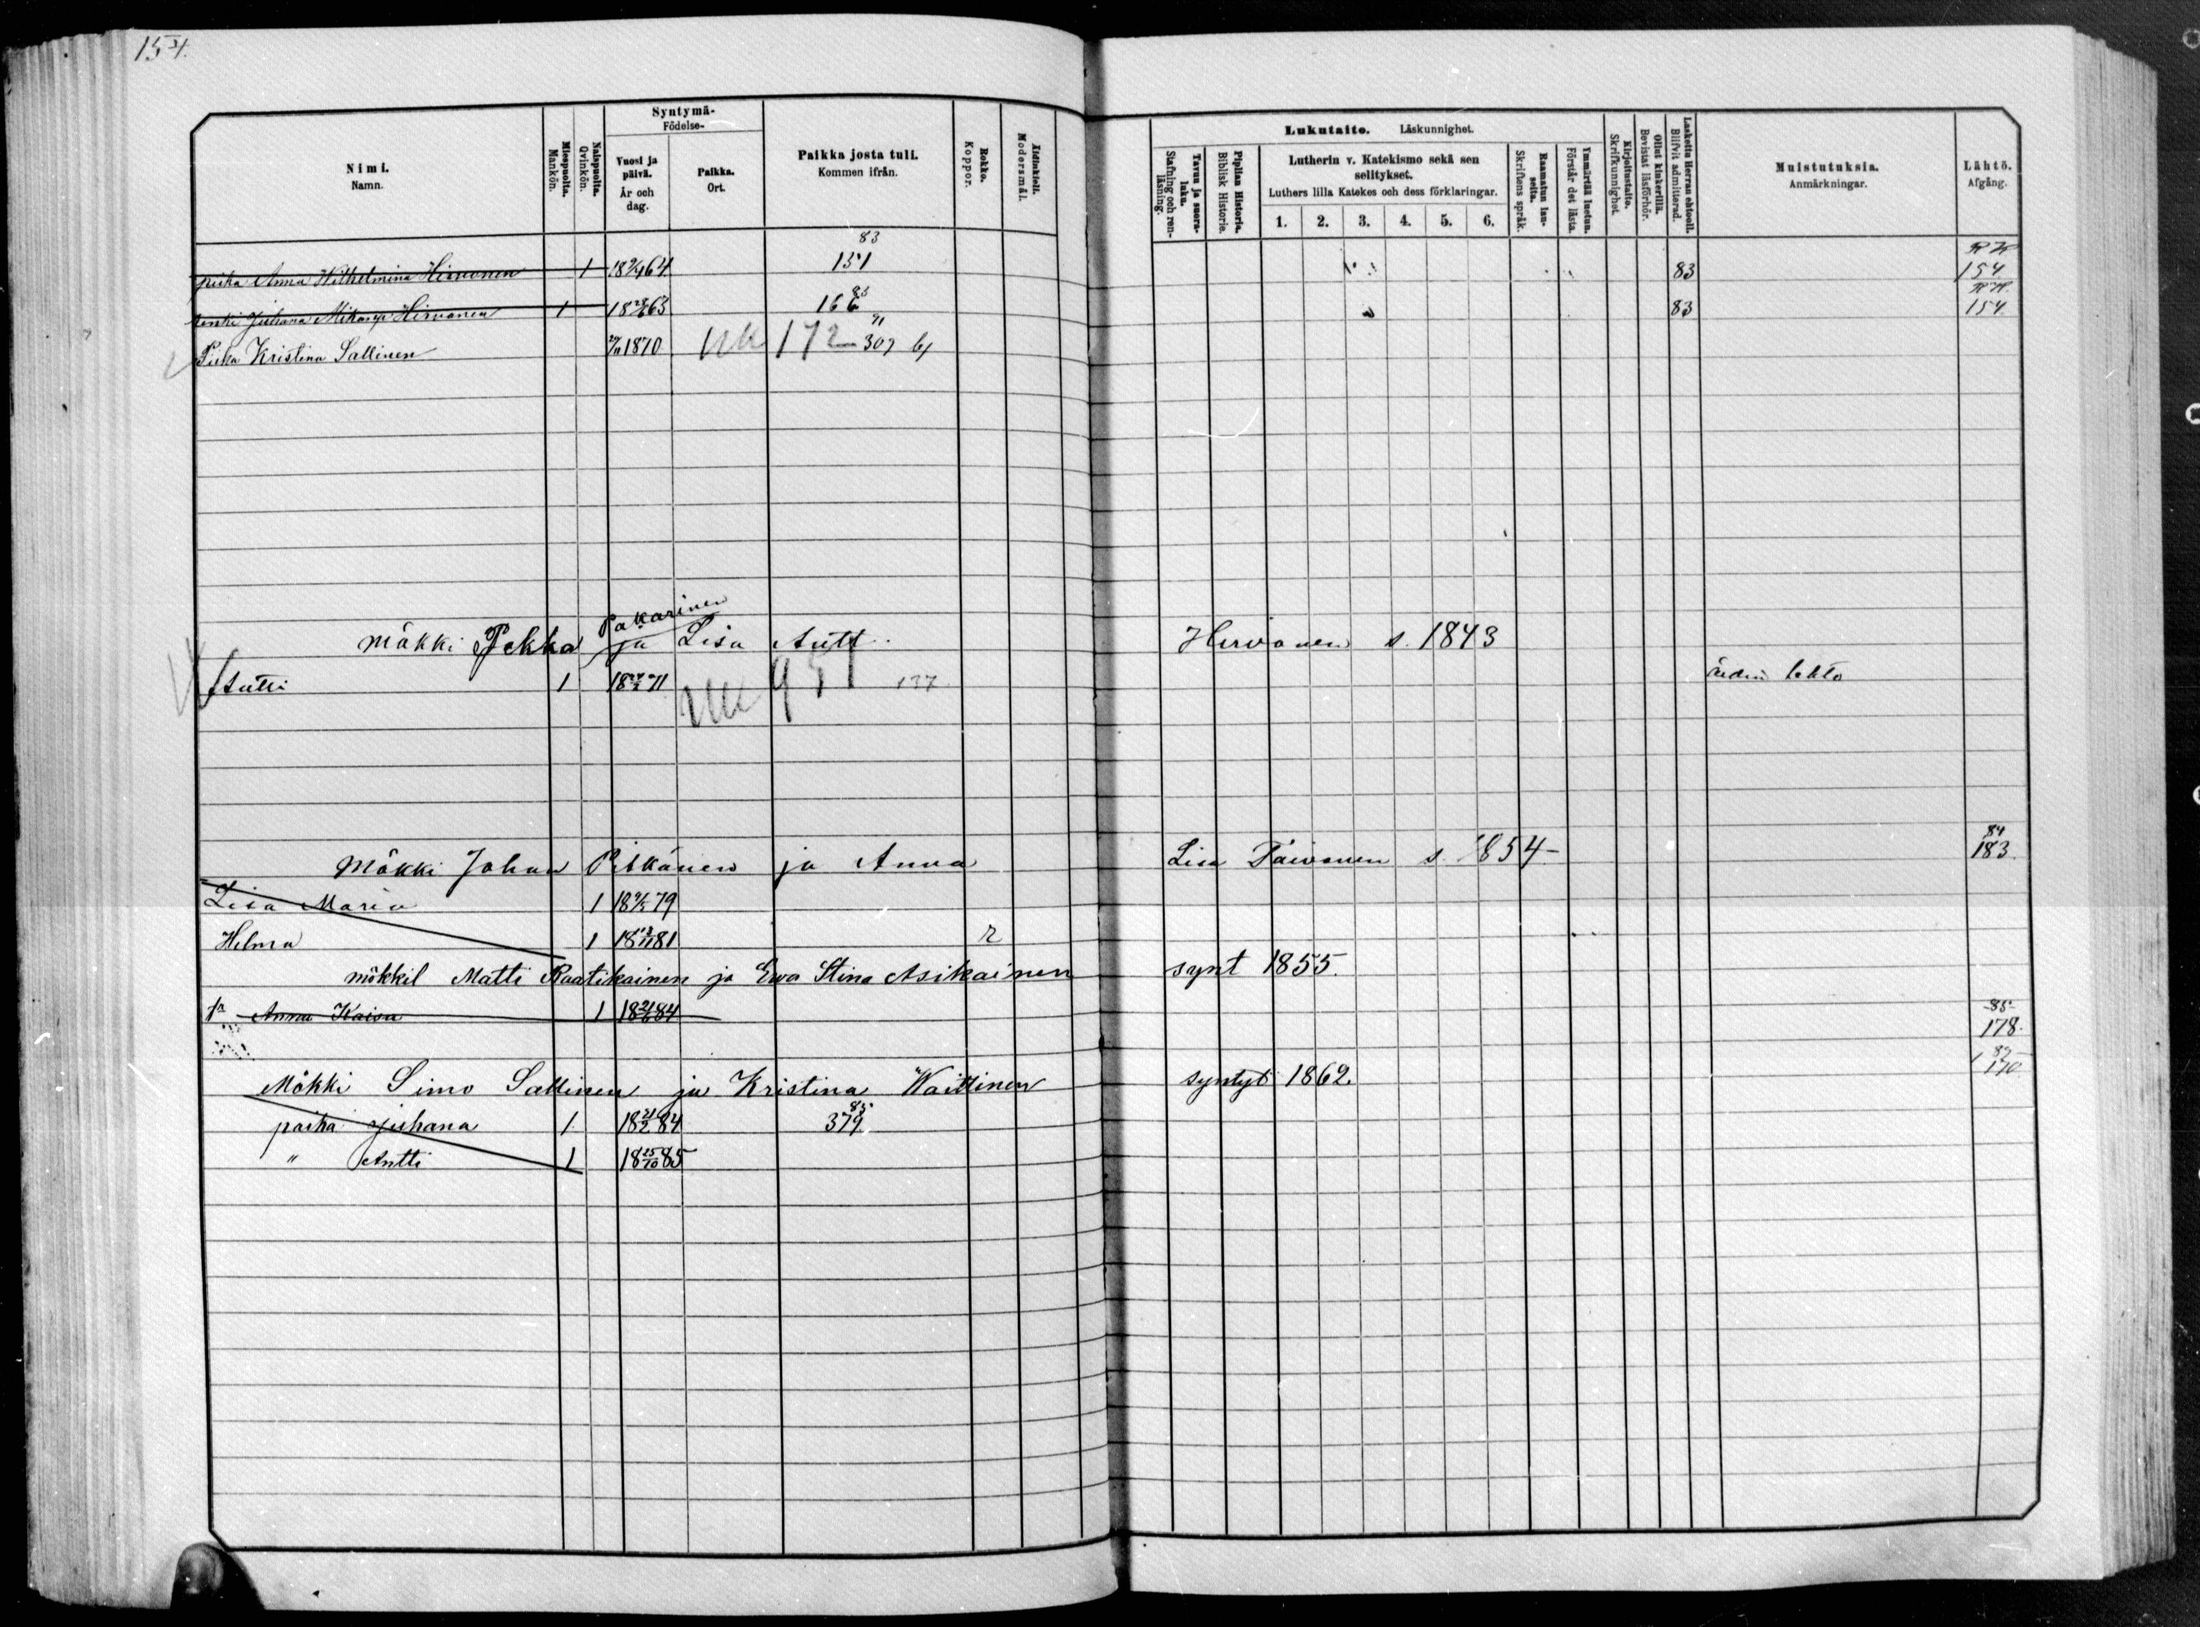 154.
Nimi.
Namn.
Miespuolta.
Mankön.
Naispuolta.
Qvinkön.
Syntymä-
Födelse-
Vuosi ja päivä.
År och dag.
Paikka.
Ort.
Paikka josta tuli.
Kommen ifrån.
Rokko.
Koppor.
Äidinkieli.
Modersmål.
Lukutaito. Läskunnighet.
Tavuu ja suora-luku.
Stafning och ren-läsning.
Piplian Historia.
Biblisk Historie.
Lutherin v. Katekismo sekä sen selitykset.
Luthers lilla Katekes och dess förklaringar.
1. 2. 3. 4. 5. 6.
Raamatun lau-seita.
Skriftens språk.
Ymmärtää luetun.
Förstår det lästa.
Kirjoitustaito.
Skrifkunnighet.
Ollut kinkerillä.
Bevistat läsförhör.
Laskettu Herran ehtooll.
Blifvit admitterad.
Muistutuksia.
Anmärkningar.
Lähtö.
Afgång.
piika Anna Wilhelmina Hirvonen 1 64 83 151 83 154
Juhana Hirvonen 1 63 83 83 154
Piika Kristina Sallinen 1870 172 91 307
Mökki Pekka Pakarinen ja Lisa Antt. Hirvonen s. 1843
Antti 1 71 951 137 lehto
Mökki Johan Pitkänen ja Anna Lisa Päivonen s. 1854 84 183.
Lisa Maria 1 79
Helma 1 81 r
mökkil Matti Raatikainen ja Ewa Stina Asikainen synt 1855.
Anna Kaisa 1 84 85 178.
Mökki Simo Sallinen ja Kristina Waittinen syntyt 1862. 170
poika Juhana 1 18 21/2 84 85 379.
" Antti 1 18 25/10 85